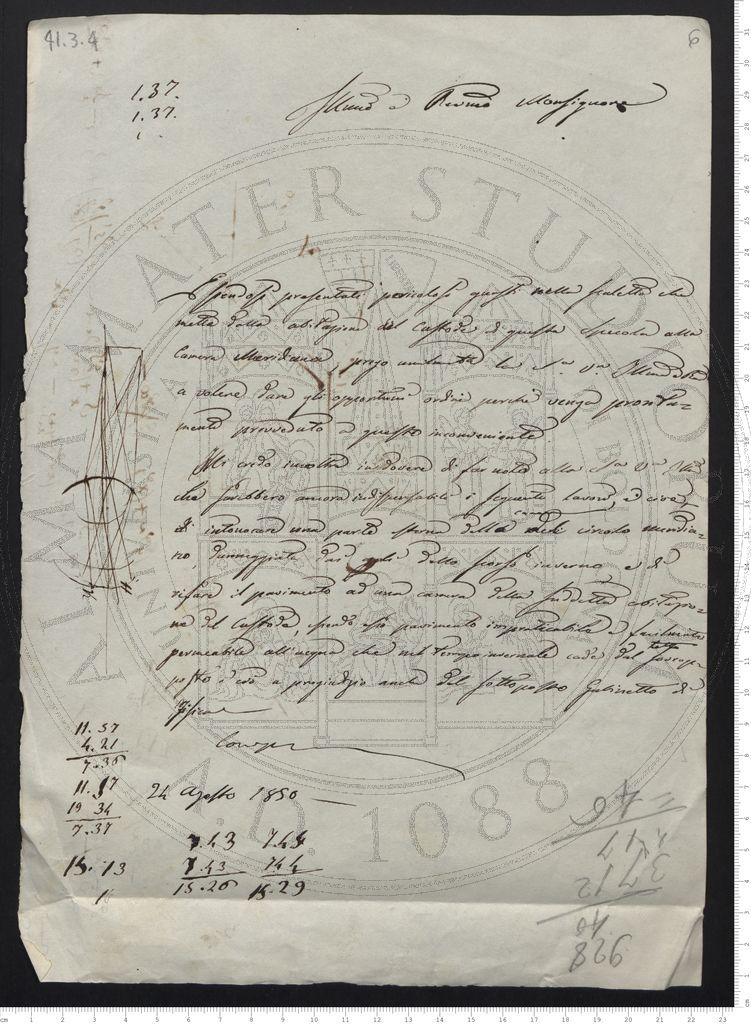 41.3.4
6
1.37.
1.37.
Illmo e Revmo Monsignore
Essendosi presentati pericolosi guasti nella scaletta che
mette dalla abitazione del Custode di questa Specola alla
Camera Meridiana, prego la S.a V.a Illma
a volere dare gli opportuni ordini perchè venga pronta-
mente provveduto a questo inconveniente.
Mi credo inoltre in dovere di far noto alla S.a V.a
che sarebbero ancora indispensabili i seguenti lavori, e cioè
di intonacare una parte esterna della camera del circolo meridia-
no, danneggiata dai geli dello scorso inverno e di
rifare il pavimento ad una camera della suddetta abitazio-
ne del Custode, essendo esso pavimento impraticabile e facilmente
permeabile all'acqua che nel tempo invernale cade dal tetto sovrap-
posto e ciò a pregiudizio anche del sottoposto Gabinetto di
Fisica
24 Agosto 1850
11.57
4.21
7.36
11.17
19 34
7.37
15.13
7.43 7.45
7.43 7.44
15.26 15.29
ALMA MATER STUDIORUM
A.D. 1088